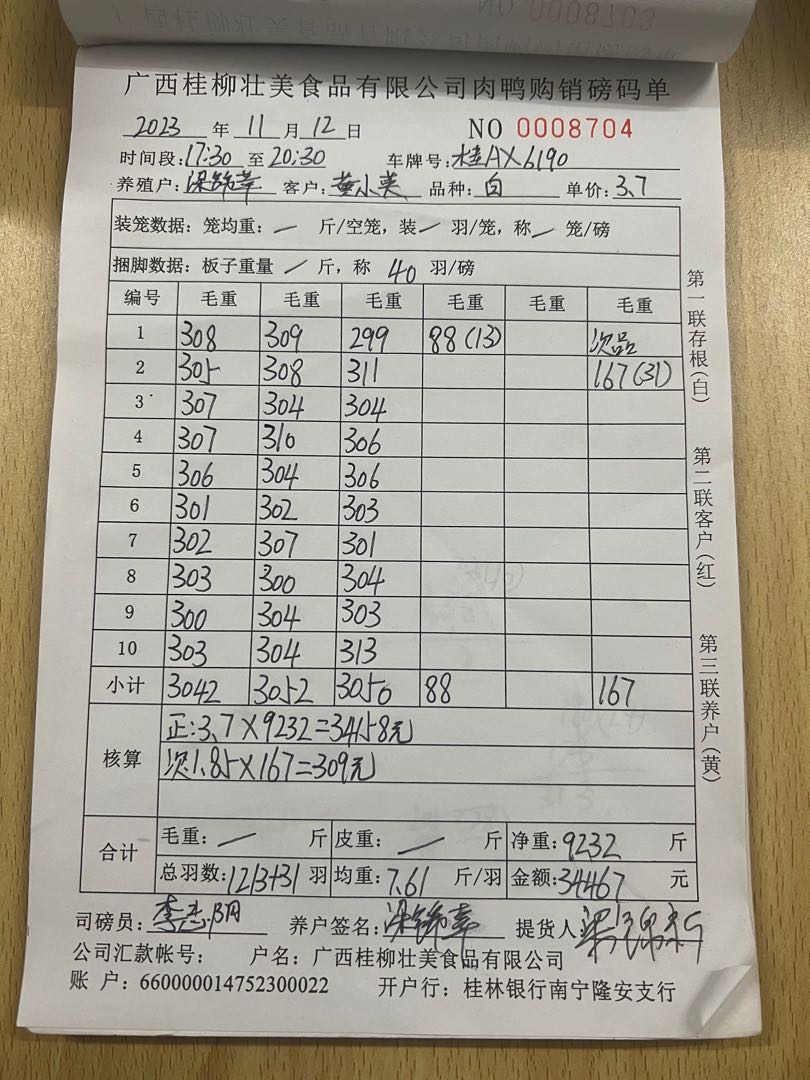 NO 0008703
广西桂柳壮美食品有限公司肉鸭购销磅码单
2023 年 11 月 12 日 NO 0008704
时间段:17:30 至 20:30 车牌号:桂AX6190
养殖户:梁锦莘 客户:黄小英 品种:白 单价:3.7
装笼数据:笼均重: — 斤/空笼,装 — 羽/笼,称 — 笼/磅
捆脚数据:板子重量 — 斤,称 40 羽/磅
编号 毛重 毛重 毛重 毛重 毛重 毛重
1 308 309 299 88(13) 次品
2 305 308 311 167(31)
3 307 304 304
4 307 310 306
5 306 304 306
6 301 302 303
7 302 307 301
8 303 300 304
9 300 304 303
10 303 304 313
小计 3042 3052 3050 88 167
核算 正:3.7×9232=34158元
次1.85×167=309元
合计 毛重: — 斤 皮重: — 斤 净重:9232 斤
总羽数:1213+31 羽 均重:7.61 斤/羽 金额:34467 元
司磅员: 养户签名: 提货人
公司汇款帐号: 户名:广西桂柳壮美食品有限公司
账 户:660000014752300022 开户行:桂林银行南宁隆安支行
第一联存根(白) 第二联客户(红) 第三联养户(黄)